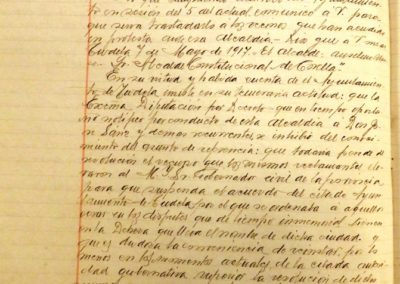 to en sesión del 5 del actual comunico a V. para
que sirva trasladarlo a los vecinos que han acudido
en protesta a esa Alcaldía = Dios que a V. m a
Tudela 7 de Mayo de 1917 = El Alcalde
Sr. Alcalde Constitucional de
En su vista y habida cuenta de el Ayuntamien
to de Tudela insiste en su temeraria actitud: que la
Excma. Diputación por Decreto que en tiempo oportu
no notifico por conducto de esta Alcaldía a Don
Sanz y demas recurrentes se inhibio del conoci
miento del asunto de referencia: que todavía pende de
resolución el recurso que los mismos reclamantes ele
varon al M. I. Sr. Gobernador civil de la provincia
para que suspenda el acuerdo del citado Ayun
tamiento de Tudela por el que se ordenaba a aquellos
los disfrutes que de tiempo inmemorial tienen
en la Dehesa que lleva el nombre de dicha ciudad y
que es dudosa la conveniencia de por lo
menos en los momentos actuales de la citada autori
dad gubernativa la resolución de dicho